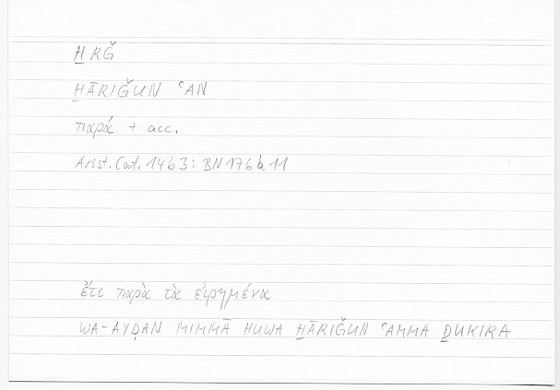 ḪRǦ
ḪĀRIǦUN ʿAN
παρά + acc.
Arist. Cat. 14b3: BN 176b11
ἔτι παρὰ τὰ εἰρημένα
WA-AYḌAN MIMMĀ HUWA ḪĀRIǦUN ʿAMMA ḎUKIRA